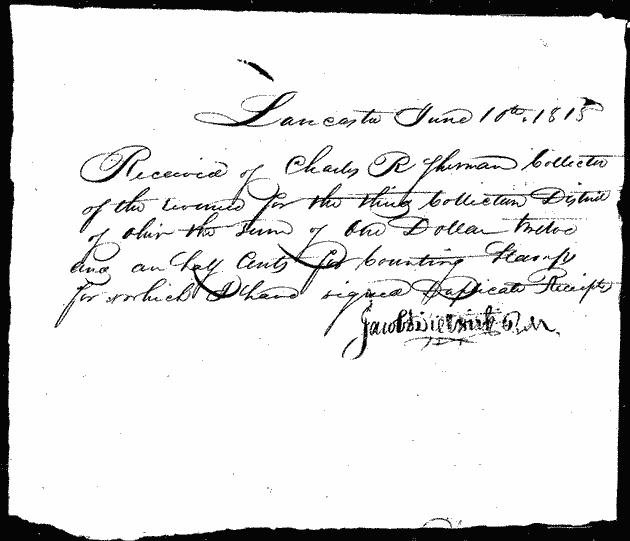 Lancaster June 10th. 1815
Received of Charles R Sherman Collector
of the revenue for the third Collection District
of Ohio the Sum of One Dollar twelve
and an half Cents for Counting Stamps
for which I have signed Duplicate Receipts
Jacob D Dietrick P. M.